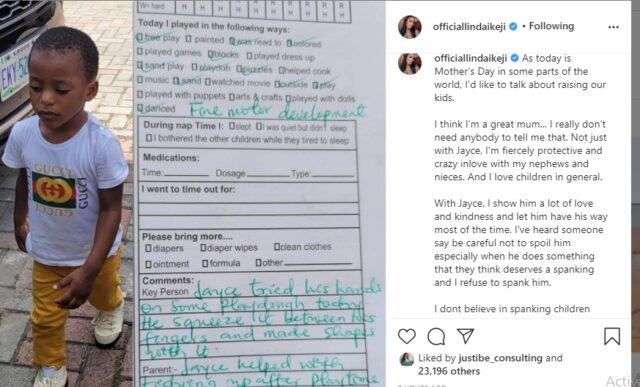 W= hard H H H H H R H R H R H
EKY 52
GUCCI
GUCCI
Today I played in the following ways:
free play painted was read to colored
played games blocks played dress up
sand play playdoh puzzles helped cook
music sand watched movie outside play
played with puppets arts & crafts played with dolls
danced Fine motor development
During nap Time I: slept I was quiet but didn't sleep
I bothered the other children while they tired to sleep
Medications:
Time: Dosage Type:
I went to time out for:
Please bring more....
diapers diaper wipes clean clothes
ointment formula other
Comments:
Key Person Jayce tried his hands
on some playdough today
He squeeze it between his
fingers and made shapes
with it.
Parent:- Jayce helped with
tidying up after playtime
officiallindaikeji • Following
officiallindaikeji As today is
Mother's Day in some parts of the
world, I'd like to talk about raising our
kids.
I think I'm a great mum... I really don't
need anybody to tell me that. Not just
with Jayce, I'm fiercely protective and
crazy inlove with my nephews and
nieces. And I love children in general.
With Jayce, I show him a lot of love
and kindness and let him have his way
most of the time. I've heard someone
say be careful not to spoil him
especially when he does something
that they think deserves a spanking
and I refuse to spank him.
I dont believe in spanking children
Liked by justibe_consulting and
23,196 others